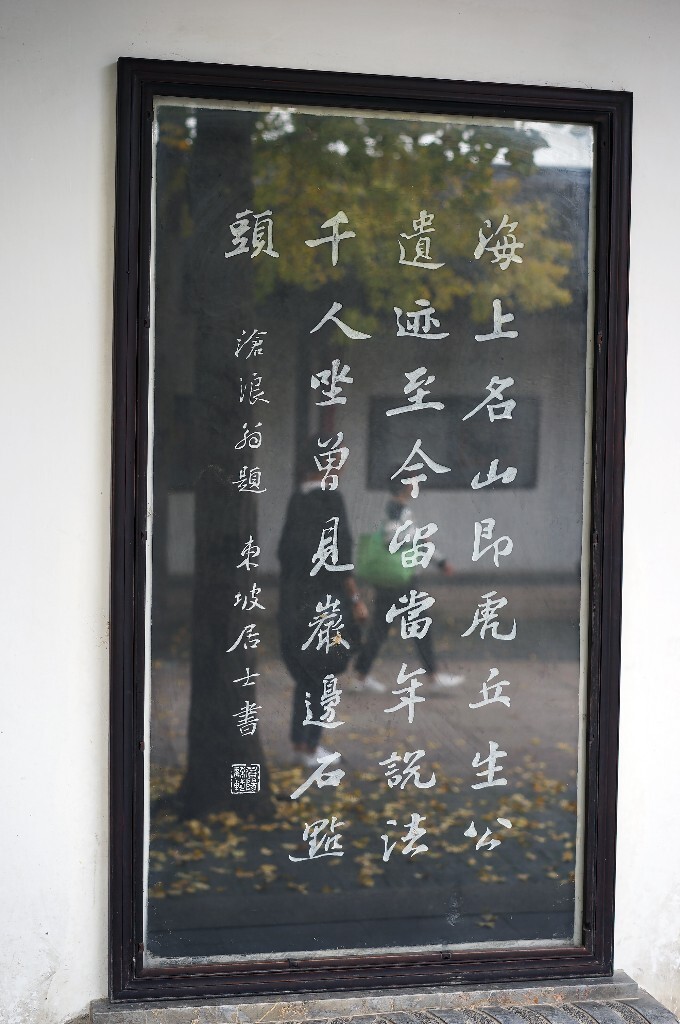 海上名山即虎丘生公
遺迹至今留當年説法
千人坐曾見巖邊石點
頭
滄浪翁題 東坡居士書